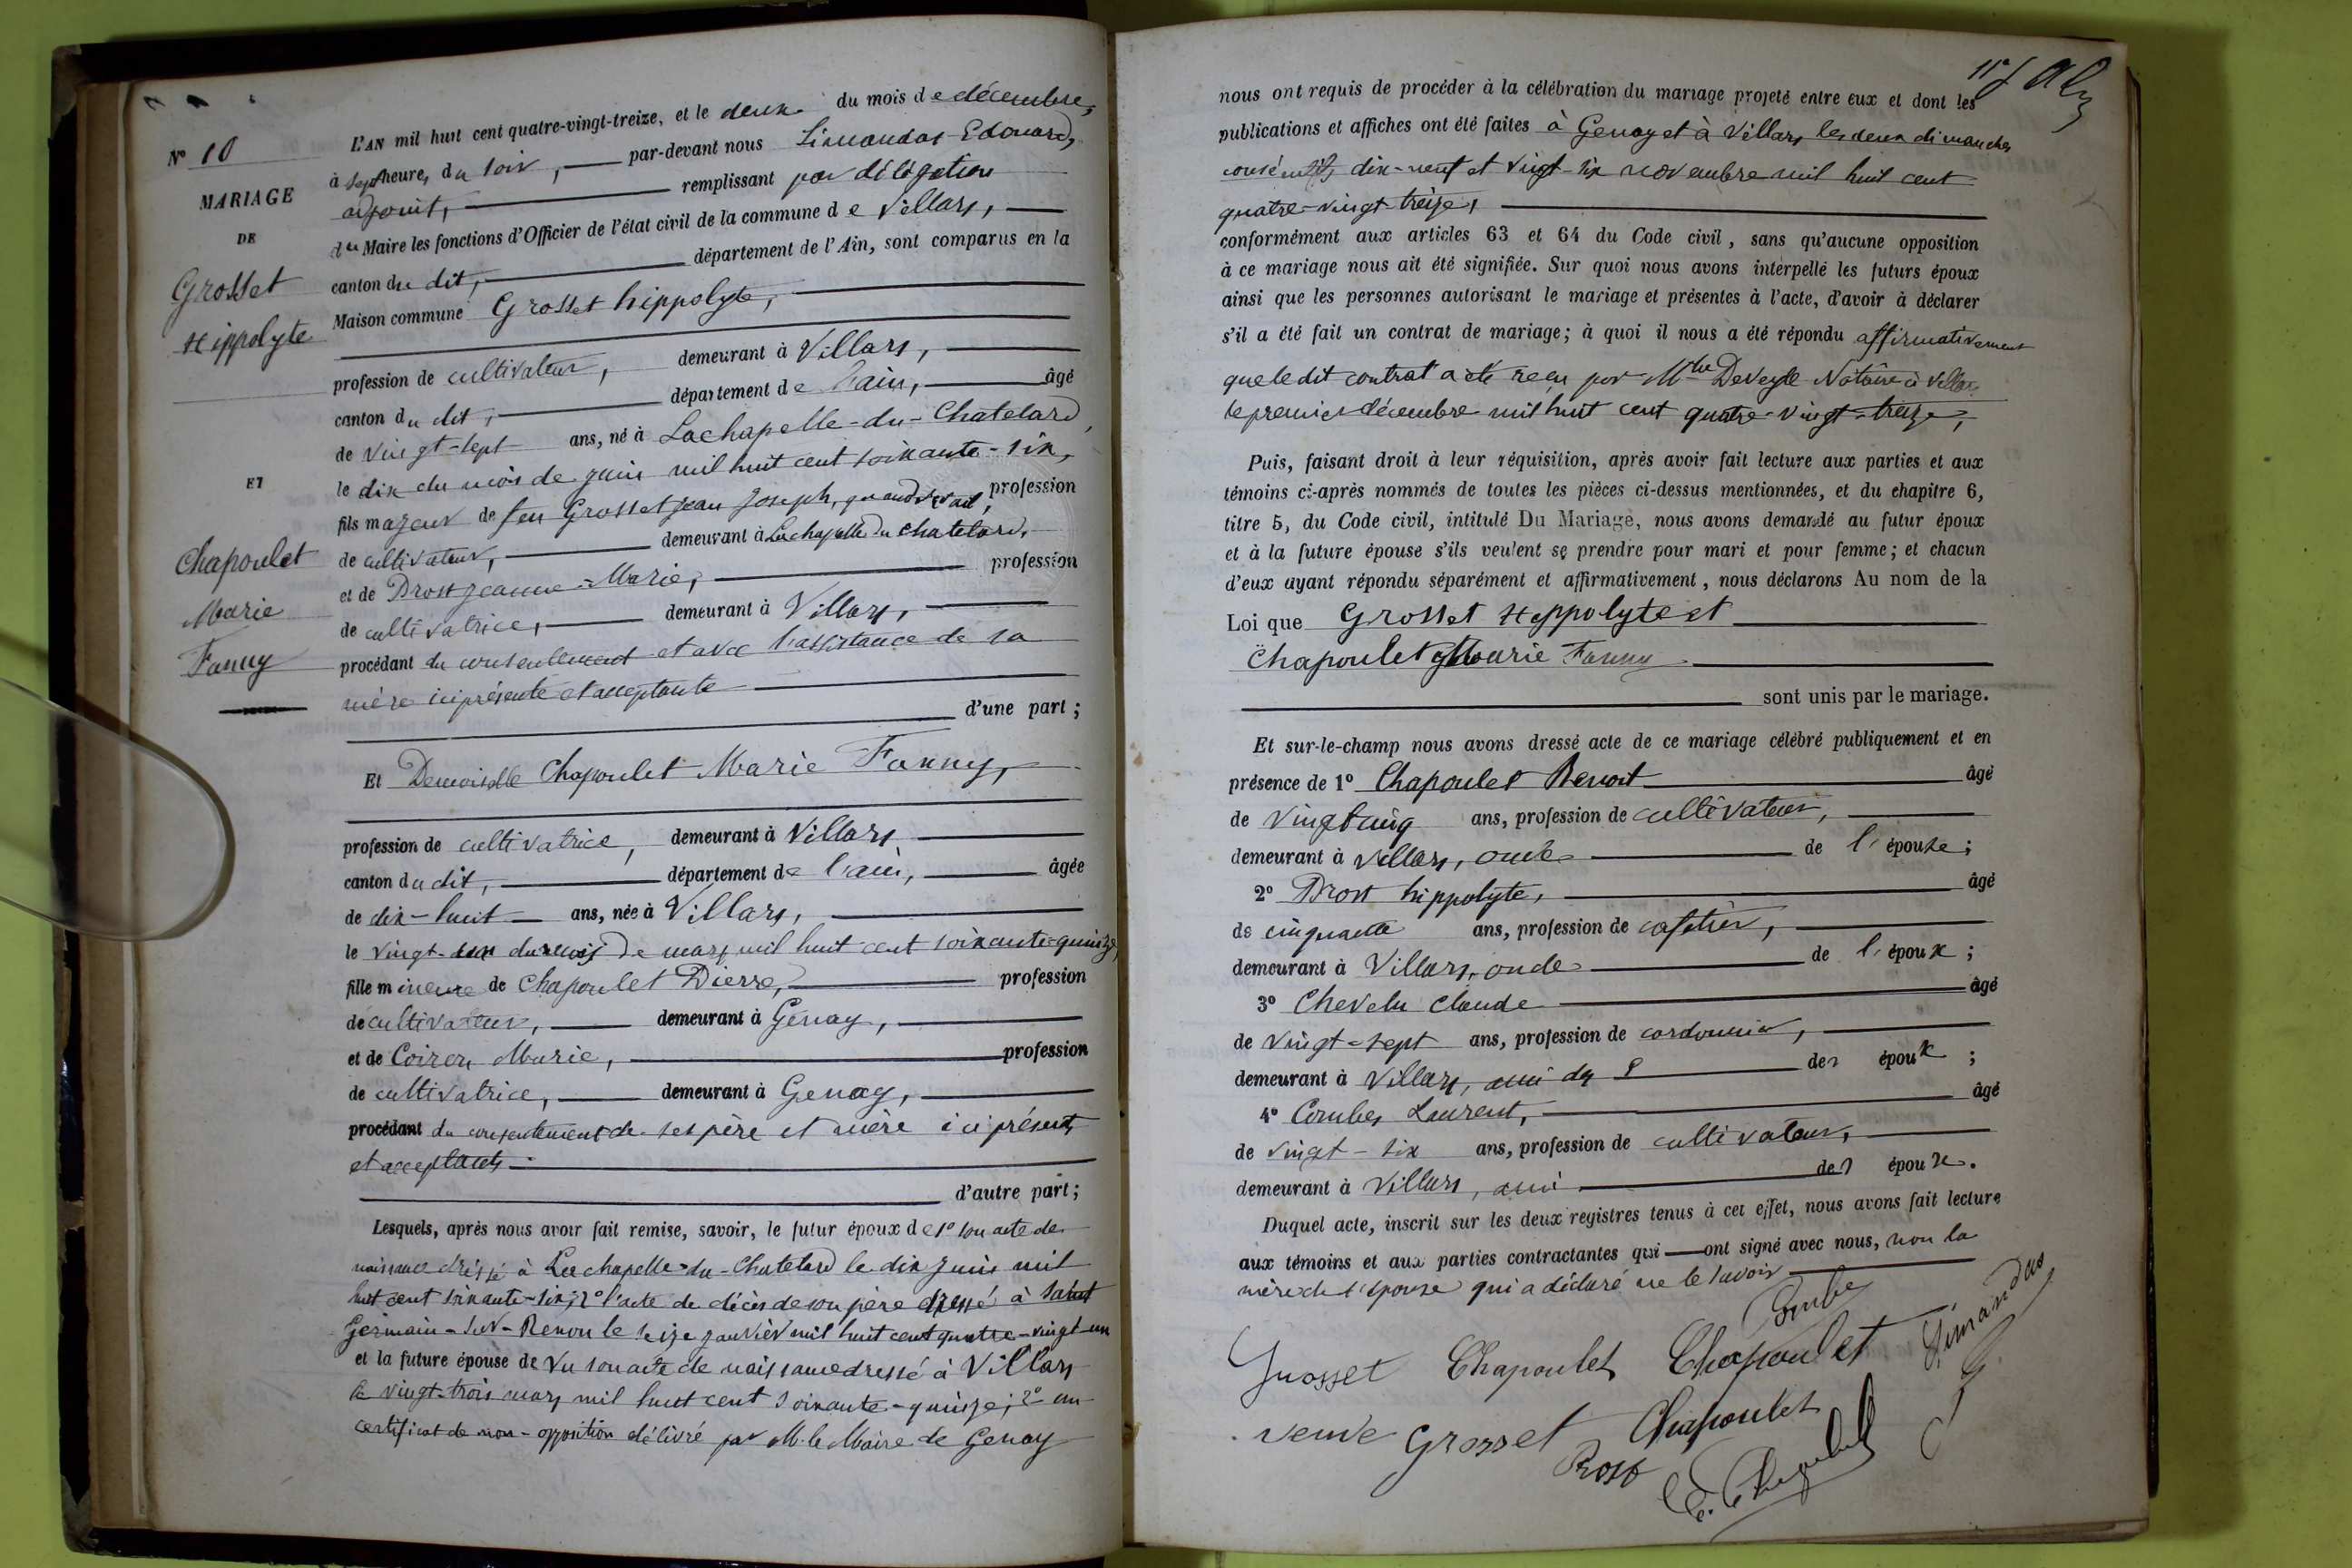 N° 10
MARIAGE
DE
Grosset
Hippolyte
ET
Chapoulet
Marie
Fanny
L'AN mil huit cent quatre-vingt-treize, et le deux du mois de décembre,
à sept heures du soir, par-devant nous Limandas Edouard,
adjoint, remplissant par délégation
du Maire les fonctions d'Officier de l'état civil de la commune de Villars,
canton du dit, département de l'Ain, sont comparus en la
Maison commune Grosset hippolyte,
profession de cultivateur, demeurant à Villars,
canton du dit, département de l'ain, âgé
de vingt-sept ans, né à Lachapelle-du-Chatelard,
le dix du mois de juin mil huit cent soixante-six,
fils majeur de feu Grosset Jean Joseph, quand vivait, profession
de cultivateur, demeurant à Lachapelle du Chatelard,
et de Prost Jeanne-Marie, profession
de cultivatrice, demeurant à Villars,
procédant du consentement et avec l'assistance de sa
mère ici présente et acceptante
d'une part;
Et Demoiselle Chapoulet Marie Fanny,
profession de cultivatrice, demeurant à Villars
canton du dit, département de l'ain, âgée
de dix-huit ans, née à Villars,
le vingt- du mois de mars mil huit cent soixante-quinze,
fille mineure de Chapoulet Pierre, profession
de cultivateur, demeurant à Génay,
et de Coiron Marie, profession
de cultivatrice, demeurant à Genay,
procédant du consentement de ses père et mère ici présents
et acceptants
d'autre part;
Lesquels, après nous avoir fait remise, savoir, le futur époux de 1° son acte de
naissance dressé à Lachapelle-du-Chatelard le dix juin mil
huit cent soixante-six; 2° l'acte de décès de son père dressé à Saint
Germain-sur-Renon le seize janvier mil huit cent quatre-vingt-un
et la future épouse de Vu son acte de naissance dressé à Villars
le vingt-trois mars mil huit cent soixante-quinze; 2° un
certificat de non-opposition délivré par M. le Maire de Genay
117
nous ont requis de procéder à la célébration du mariage projeté entre eux et dont les
publications et affiches ont été faites à Genay et à Villars les deux dimanches
consécutifs dix-neuf et vingt-six novembre mil huit cent
quatre-vingt-treize,
conformément aux articles 63 et 64 du Code civil, sans qu'aucune opposition
à ce mariage nous ait été signifiée. Sur quoi nous avons interpellé les futurs époux
ainsi que les personnes autorisant le mariage et présentes à l'acte, d'avoir à déclarer
s'il a été fait un contrat de mariage; à quoi il nous a été répondu affirmativement
que le dit contrat a été reçu par Mtre Deveyle Notaire à Villars
le premier décembre mil huit cent quatre-vingt-treize,
Puis, faisant droit à leur réquisition, après avoir fait lecture aux parties et aux
témoins ci-après nommés de toutes les pièces ci-dessus mentionnées, et du chapitre 6,
titre 5, du Code civil, intitulé Du Mariage, nous avons demandé au futur époux
et à la future épouse s'ils veulent se prendre pour mari et pour femme; et chacun
d'eux ayant répondu séparément et affirmativement, nous déclarons Au nom de la
Loi que Grosset Hyppolyte et
Chapoulet Marie Fanny
sont unis par le mariage.
Et sur-le-champ nous avons dressé acte de ce mariage célébré publiquement et en
présence de 1° Chapoulet Benoit âgé
de vingt cinq ans, profession de cultivateur,
demeurant à Villars, oncle de l'épouse;
2° Prost hippolyte, âgé
de cinquante ans, profession de cafetier,
demeurant à Villars, oncle de l'époux;
3° Chevelu Claude âgé
de vingt-sept ans, profession de cordonnier,
demeurant à Villars, ami des époux;
4° Combes Laurent, âgé
de vingt-six ans, profession de cultivateur,
demeurant à Villars, ami des époux.
Duquel acte, inscrit sur les deux registres tenus à cet effet, nous avons fait lecture
aux témoins et aux parties contractantes qui ont signé avec nous, non la
mère de l'épouse qui a déclaré ne le savoir
Combe
Grosset Chapoulet Chapoulet Limandas
veuve Grosset Chapoulet
Prost